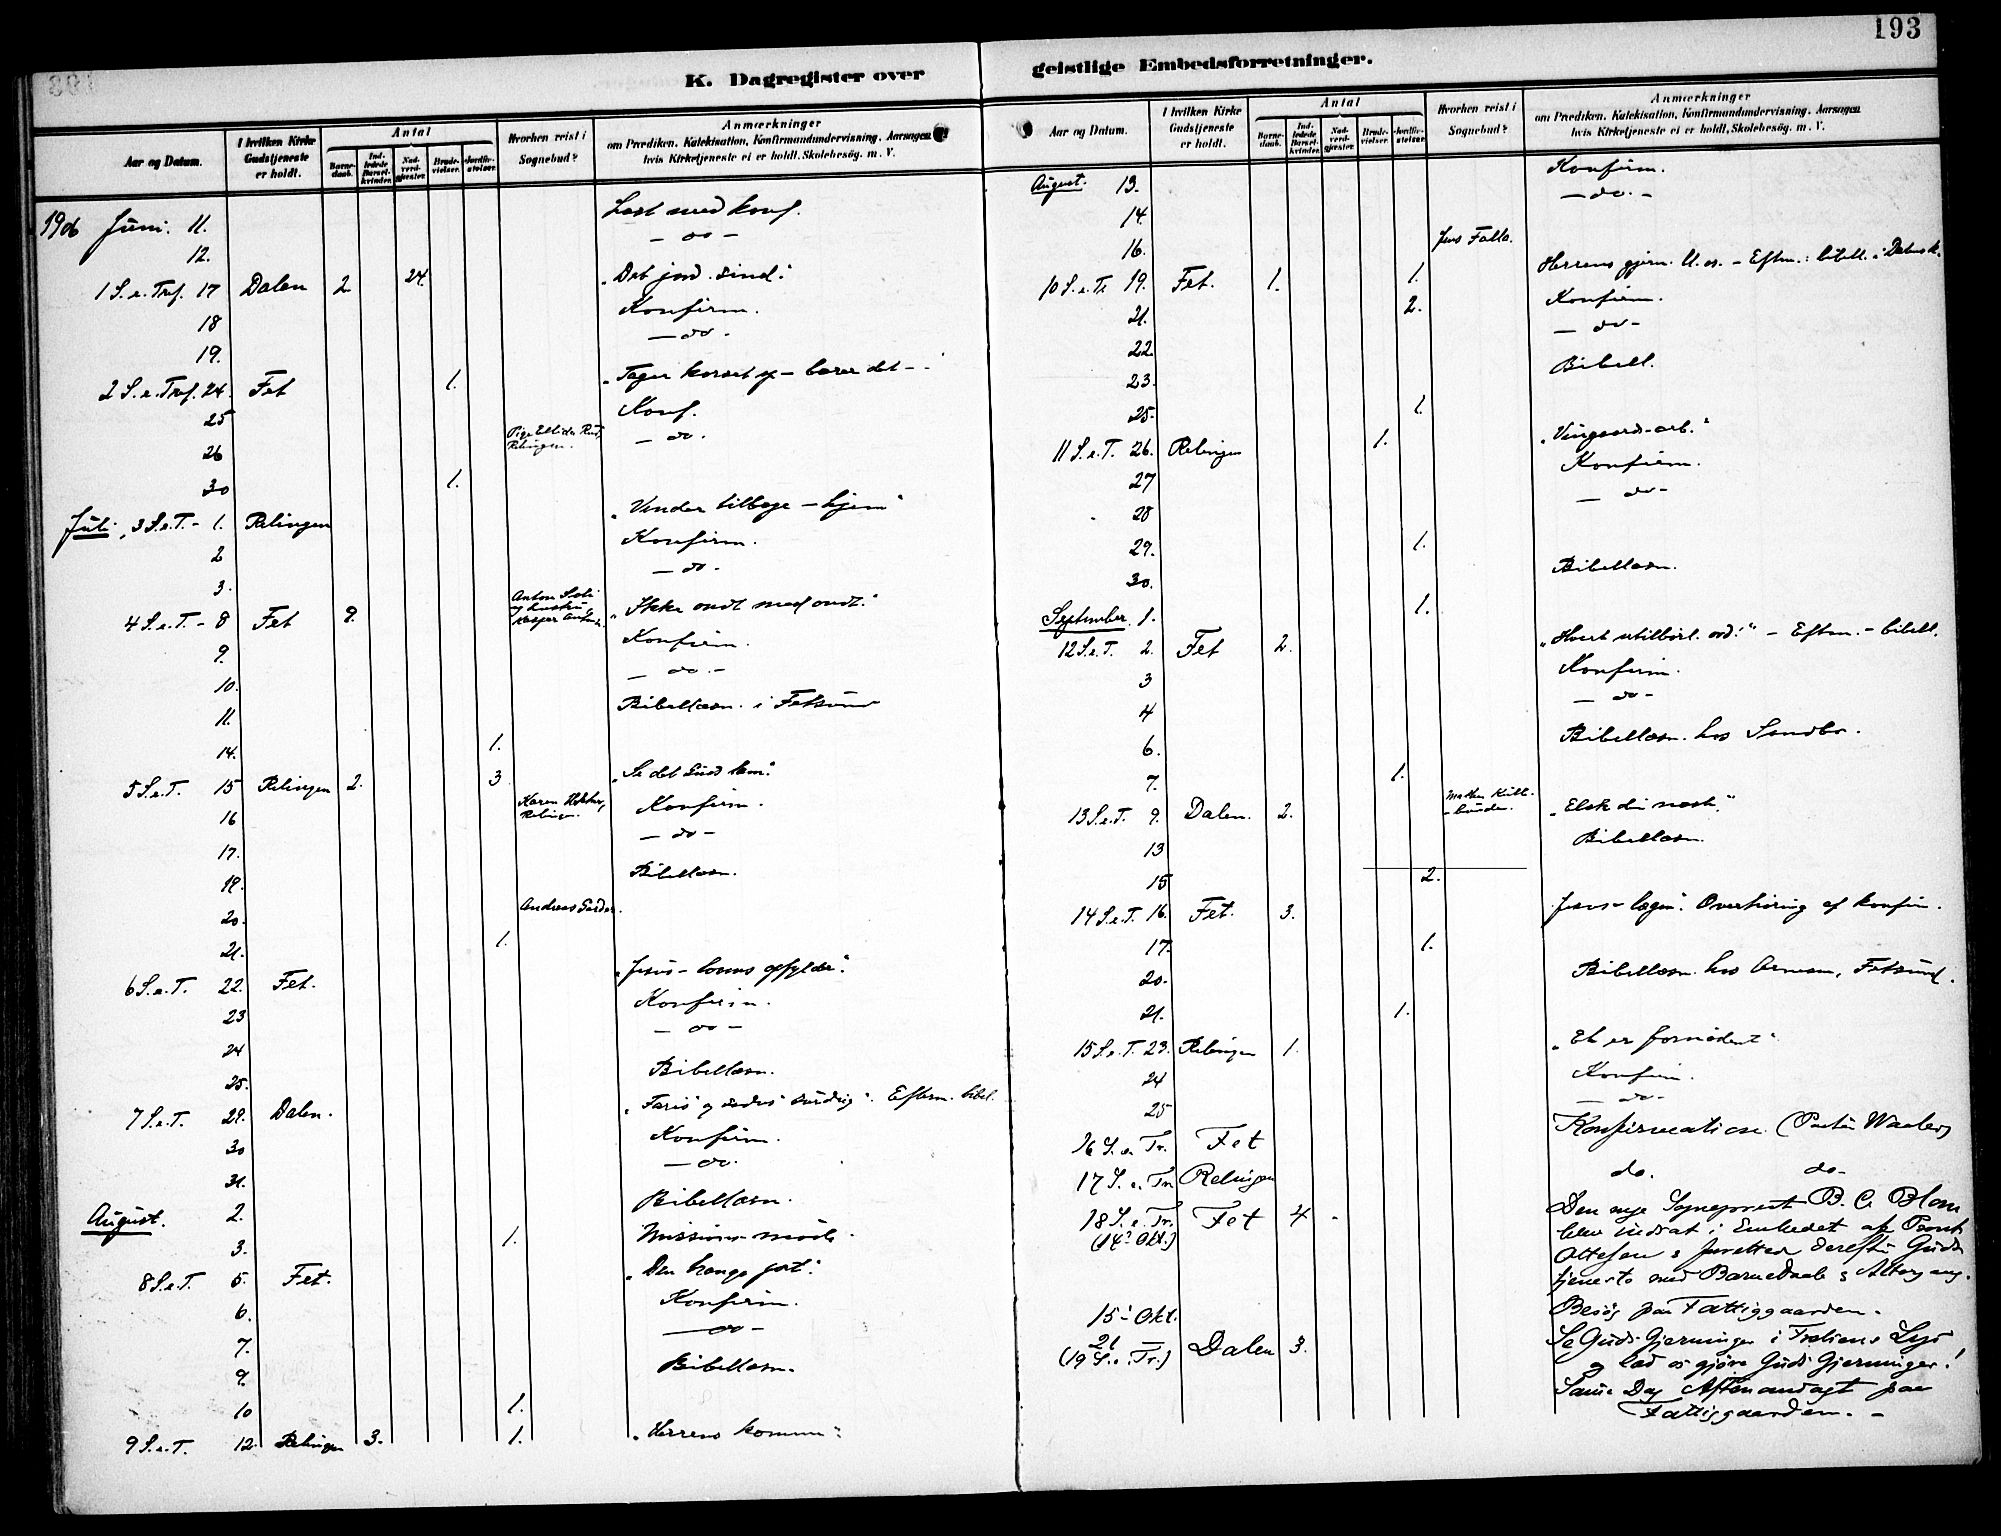 193
K. Dagregister over
Aar og Datum.
I hvilken Kirke Gudstjeneste er holdt.
Antal
Barne-daab.
Ind-ledede Barsel-kvinder.
Nad-verd-gjæster.
Brude-vielser.
Jordfæ-stelser.
Hvorhen reist i Sognebud?
Anmærkninger
om Prædiken, Katekisation, Konfirmandundervisning, Aarsagen
hvis Kirketjeneste ei er holdt, Skolebesög, m. V.
1906 Juni. 11. Læst med konf.
12. — do —
1 S. e. Tref. 17 Dalen 2 24. "Det jord. sind."
18 Konfirm.
19. — do —
2 S. e. Tref. 24. Fet 1. "Tager korset op – bærer det –"
25 Konf.
26 Relingen. — do.
30 1.
Juli 3 S. e. T. – 1. Relingen "Vender tilbage – hjem"
2 Konfirm.
3. — do.
4 S. e. T. – 8 Fet 9. Anton "Ikke ondt med ondt."
9. Konfirm.
10. — do. –
11. Bibellæsn. i Fetsund
14. 1.
5 S. e. T. 15 Relingen 2. 3 "Se det Guds lam."
16 Karen Konfirm.
17. — do —
19. Bibellæsn.
20. Andreas
21. 1.
6 S. e. T. 22. Fet. "Jesus – lovens opfylder."
23 Konfirm.
24 — do —
25. Bibellæsn.
7 S. e. T. 29. Dalen. Efterm. bibel.
30 Konfirm.
31. — do.
August. 2. Bibellæsn.
3. 1. Missions møde.
8 S. e. T. 5. Fet. "Den trange port."
6. Konfirm.
7. — do —
9. Bibellæsn.
10 1.
9 S. e. T. 12. Relingen 3. 1. "Herrens komme"
geistlige Embedsforretninger.
Aar og Datum.
I hvilken Kirke Gudstjeneste er holdt.
Antal
Barne-daab.
Ind-ledede Barsel-kvinder.
Nad-verd-gjæster.
Brude-vielser.
Jordfæ-stelser.
Hvorhen reist i Sognebud?
Anmærkninger
om Prædiken, Katekisation, Konfirmandundervisning, Aarsagen
hvis Kirketjeneste ei er holdt, Skolebesög, m. V.
August. 13. Konfirm.
14. — do. –
16. Jens Falla.
10 S. e. Tr. 19. Fet. 1. 1. Herrens gjern. – Eftm.: bibell. i
21. 2. Konfirm.
22. — do –
23. Bibell.
25. 1.
11 S. e. T. 26. Relingen 1. "Vingaards-arb."
27 Konfirm.
28 — do –
29. 1.
30. Bibellæsn.
September. 1. 1.
12 S. e. T. 2. Fet 2. "Hvert utilbørl. ord." – Eftm. – bibell.
3 Konfirm.
4 — do –
6. Bibellæsn. hos Sandbo.
7. 1.
13 S. e. T. 9. Dalen. 2. "Elsk din næste."
13 Bibellæsn.
15 2.
14 S. e. T. 16. Fet. 3. Jesus – lægen". Overhöring af konfirm.
17. 1.
20. Bibellæsn. hos Arnesen, Fetsund.
21. 1.
15 S. e. T. 23. Relingen 1. "Et er fornødent"
24 Konfirm.
25 — do –
16 S. e. Tr. Fet Konfirmation (Pastor Waaler)
17 S. e. Tr. Relingen do. do–
18 S. e. Tr. Fet 4 – Den nye Sogneprest B. C. Blom
(14de Okt.) blev indsat i Embedet af Provst
Ottesen & forrettede derefter Guds
tjeneste med Barnedaab & Altergang.
15de Okt. Besög paa Fattiggaarden.
21 Dalen 3. Se Guds Gjerninger i Lys
(19 S. e. Tr.) og lad os gjöre Guds Gjerninger!
Samme Dag Aftenandagt paa
Fattiggaarden. –